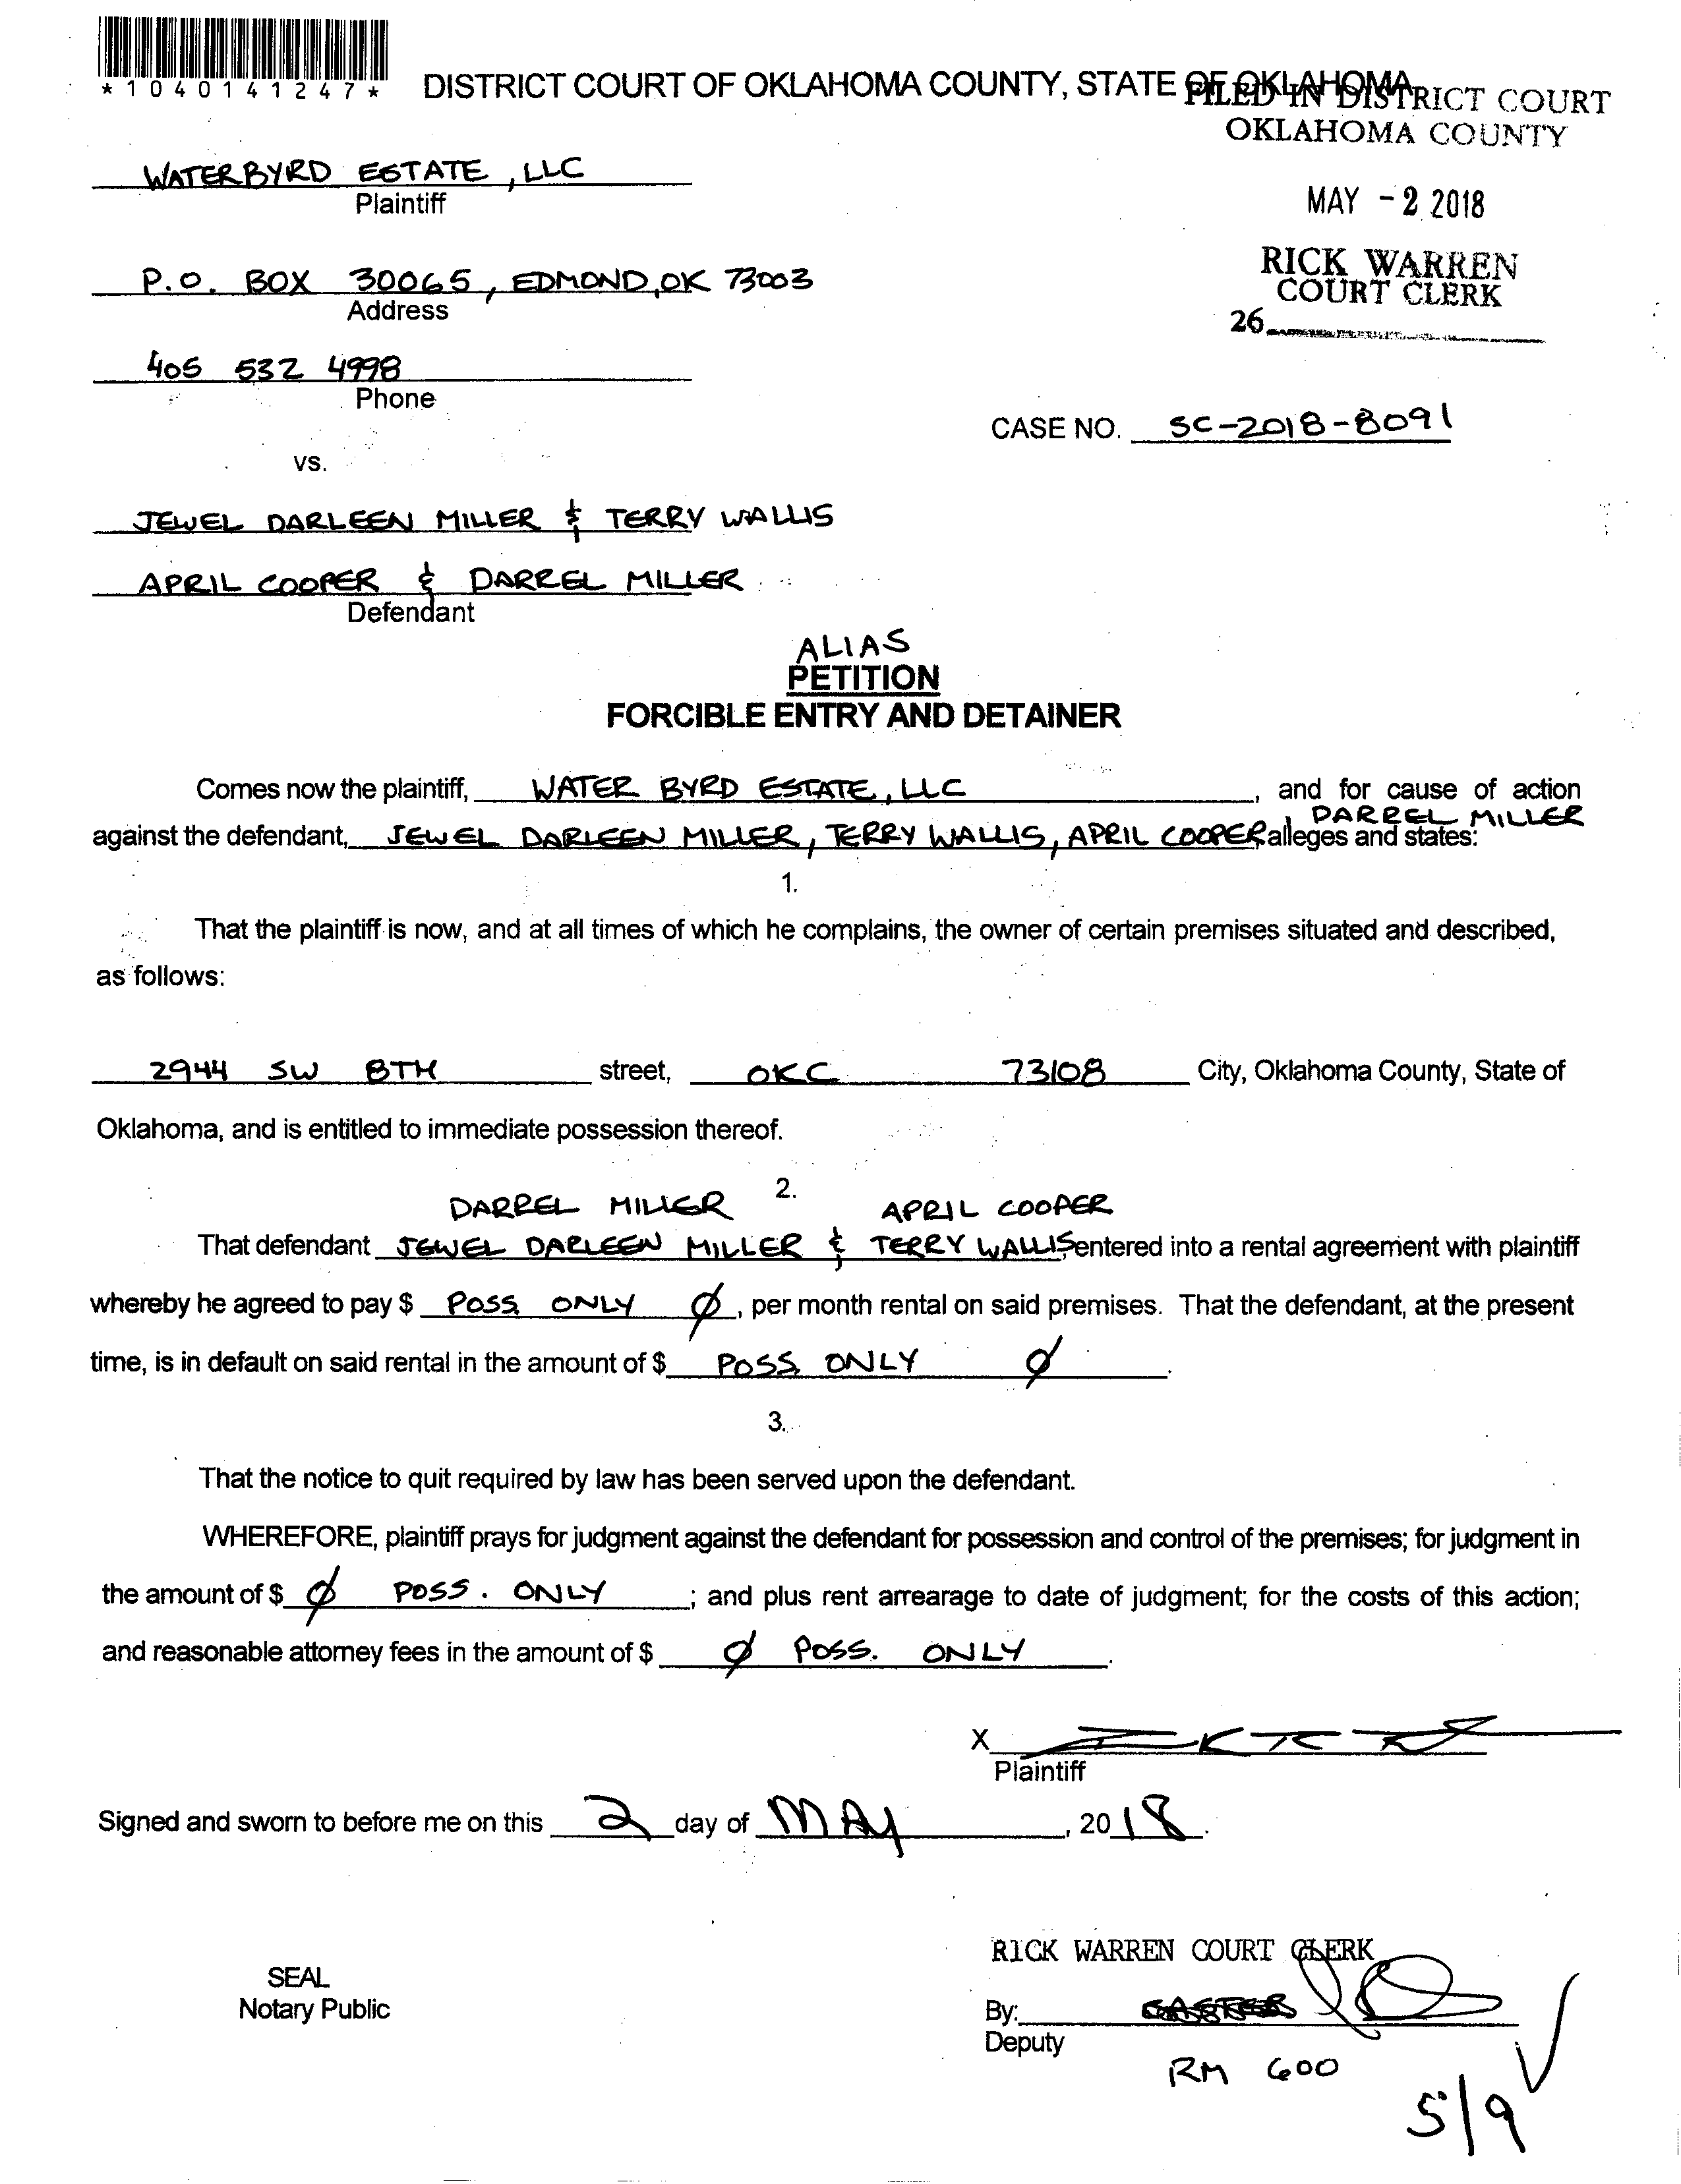 *1040141247*
DISTRICT COURT OF OKLAHOMA COUNTY, STATE OF OKLAHOMA
FILED IN DISTRICT COURT
OKLAHOMA COUNTY
WATERBYRD ESTATE, LLC
Plaintiff
MAY - 2 2018
RICK WARREN
COURT CLERK
26
P.O. BOX 30065, EDMOND, OK 73003
Address
405 532 4998
Phone
CASE NO. SC-2018-8091
vs.
JEWEL DARLEEN MILLER & TERRY WALLIS
APRIL COOPER & DARREL MILLER
Defendant
ALIAS
PETITION
FORCIBLE ENTRY AND DETAINER
Comes now the plaintiff, WATER BYRD ESTATE, LLC, and for cause of action
, DARREL MILLER
against the defendant, JEWEL DARLEEN MILLER, TERRY WALLIS, APRIL COOPER alleges and states:
1.
That the plaintiff is now, and at all times of which he complains, the owner of certain premises situated and described,
as follows:
2944 SW 8TH street, OKC 73108 City, Oklahoma County, State of
Oklahoma, and is entitled to immediate possession thereof.
2.
DARREL MILLER APRIL COOPER
That defendant JEWEL DARLEEN MILLER & TERRY WALLIS entered into a rental agreement with plaintiff
whereby he agreed to pay $ POSS. ONLY Ø, per month rental on said premises. That the defendant, at the present
time, is in default on said rental in the amount of $ POSS. ONLY Ø.
3.
That the notice to quit required by law has been served upon the defendant.
WHEREFORE, plaintiff prays for judgment against the defendant for possession and control of the premises; for judgment in
the amount of $ Ø POSS. ONLY; and plus rent arrearage to date of judgment; for the costs of this action;
and reasonable attorney fees in the amount of $ Ø POSS. ONLY.
X
Plaintiff
Signed and sworn to before me on this 2 day of MAY, 2018.
RICK WARREN COURT CLERK
SEAL
Notary Public
By:
Deputy
RM 600
5/9